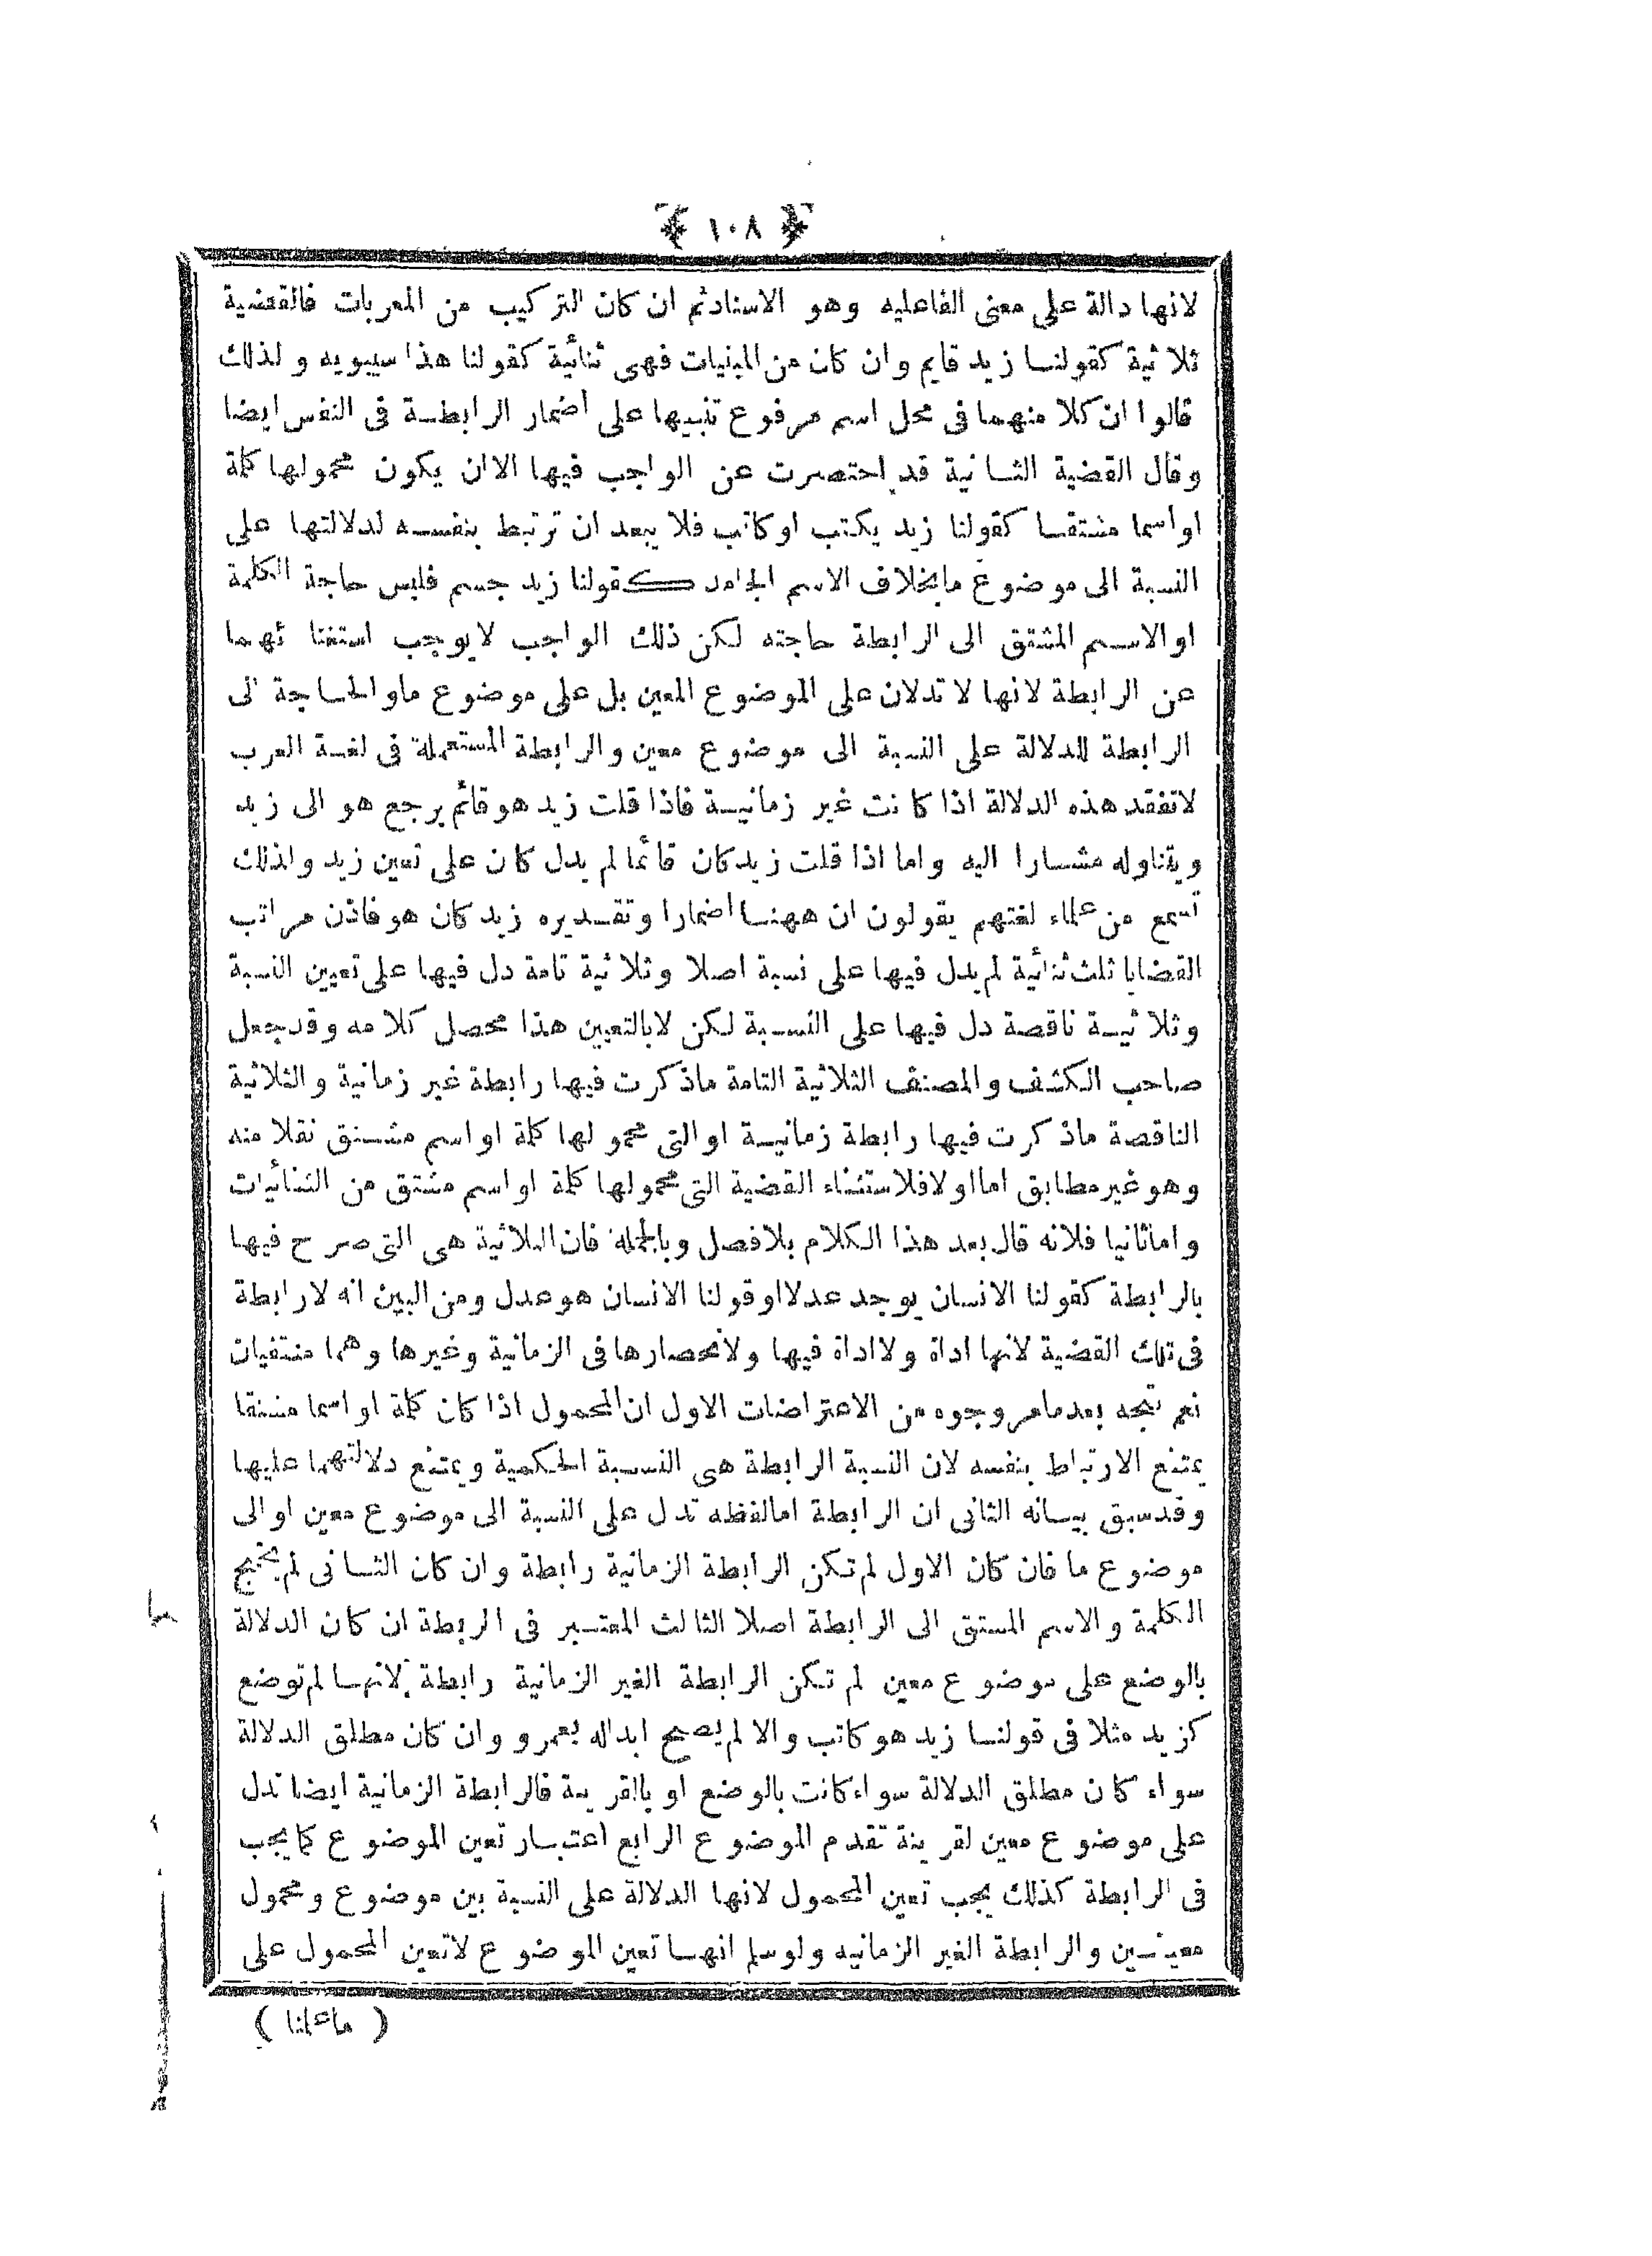 ﴿ ١٠٨ ﴾
لانها دالة على معنى الفاعليه وهو الاسناد ثم ان كان التركيب من المعربات فالقضية
ثلاثية كقولنا زيد قايم وان كان من المبنيات فهى ثنائية كقولنا هذا سيبويه ولذلك
قالوا ان كلا منهما فى محل اسم مرفوع تنبيها على اضمار الرابطة فى النفس ايضا
وقال القضية الثانية قد اختصرت عن الواجب فيها الا ان يكون محمولها كلة
او اسما مشتقا كقولنا زيد يكتب او كاتب فلا يبعد ان ترتبط بنفسه لدلالتها على
النسبة الى موضوع ما بخلاف الاسم الجامد كقولنا زيد جسم فليس حاجة الكلمة
او الاسم المشتق الى الرابطة حاجته لكن ذلك الواجب لا يوجب استغنا ئهما
عن الرابطة لانها لا تدلان على الموضوع المعين بل على موضوع ما والحاجة الى
الرابطة للدلالة على النسبة الى موضوع معين والرابطة المستعملة فى لغة العرب
لا تفقد هذه الدلالة اذا كانت غير زمانية فاذا قلت زيد هو قائم يرجع هو الى زيد
ويتناوله مشارا اليه واما اذا قلت زيد كان قائما لم يدل كان على تعين زيد ولذلك
تسمع من علماء لغتهم يقولون ان ههنا اضمارا وتقديره زيد كان هو فاذن مراتب
القضايا ثلث ثنائية لم يدل فيها على نسبة اصلا وثلاثية تامة دل فيها على تعيين النسبة
وثلاثية ناقصة دل فيها على النسبة لكن لا بالتعيين هذا محصل كلامه وقد جعل
صاحب الكشف والمصنف الثلاثية التامة ماذكرت فيها رابطة غير زمانية والثلاثية
الناقصة ماذكرت فيها رابطة زمانية او التى محمولها كلة او اسم مشتق نقلا منه
وهو غير مطابق اما اولا فلاستثناء القضية التى محمولها كلة او اسم مشتق من الثنائيات
واما ثانيا فلانه قال بعد هذا الكلام بلا فصل وبالجملة فان الثلاثية هى التى صرح فيها
بالرابطة كقولنا الانسان يوجد عدلا او قولنا الانسان هو عدل ومن البين انه لا رابطة
فى تلك القضية لانها اداة ولا اداة فيها ولانحصارها فى الزمانية وغيرها وهما منتفيان
نعم تتجه بعد ما مر وجوه من الاعتراضات الاول ان المحمول اذا كان كلة او اسما مشتقا
يمتنع الارتباط بنفسه لان النسبة الرابطة هى النسبة الحكمية ويمتنع دلالتهما عليها
وقد سبق بيانه الثانى ان الرابطة اما لفظه تدل على النسبة الى موضوع معين او الى
موضوع ما فان كان الاول لم تكن الرابطة الزمانية رابطة وان كان الثانى لم يحتج
الكلمة والاسم المشتق الى الرابطة اصلا الثالث المعتبر فى الربطة ان كان الدلالة
بالوضع على موضوع معين لم تكن الرابطة الغير الزمانية رابطة لانها لم توضع
كزيد مثلا فى قولنا زيد هو كاتب والا لم يصح ابداله بعمرو وان كان مطلق الدلالة
سواء كان مطلق الدلالة سواء كانت بالوضع او بالقرينة فالرابطة الزمانية ايضا تدل
على موضوع معين لقرينة تقدم الموضوع الرابع اعتبار تعين الموضوع كما يجب
فى الرابطة كذلك يجب تعين المحمول لانها الدلالة على النسبة بين موضوع ومحمول
معينين والرابطة الغير الزمانيه ولو سلم انها تعين الموضوع لا تعين المحمول على
( ما علمنا )